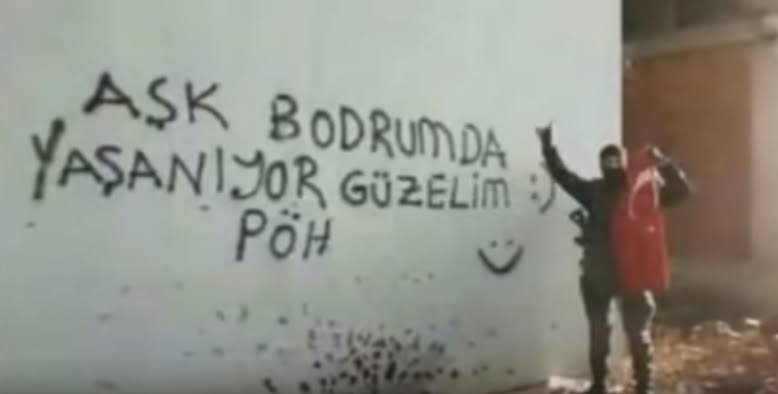 AŞK BODRUMDA
YAŞANIYOR GÜZELİM :)
PÖH